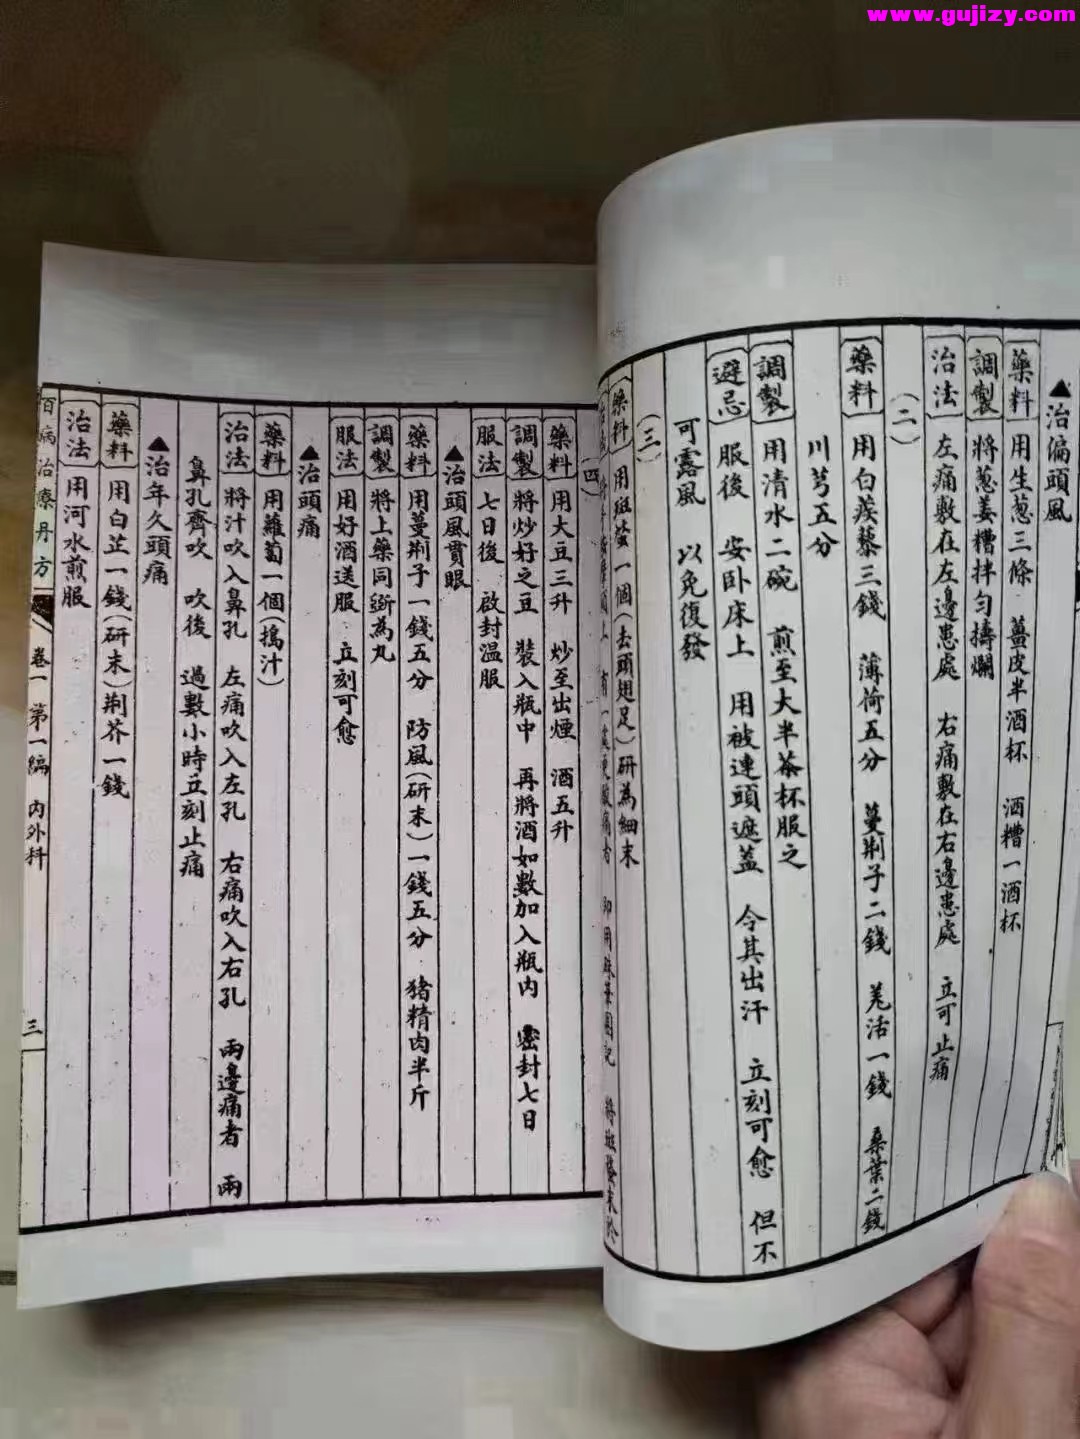 www.gujizy.com
▲治偏頭風
藥料 用生葱三條 薑皮半酒杯 酒糟一酒杯
調製 將葱姜糟拌勻擣爛
治法 左痛敷在左邊患處 右痛敷在右邊患處 立可止痛
(二)
藥料 用白蒺藜三錢 薄荷五分 蔓荆子二錢 羌活一錢 桑葉二錢
川芎五分
調製 用清水二碗 煎至大半茶杯服之
避忌 服後 安卧床上 用被連頭遮蓋 令其出汗 立刻可愈 但不
可露風 以免復發
(三)
藥料 用斑蝥一個(去頭翅足)研為細末
四)
藥料 用大豆三升 炒至出煙 酒五升
調製 將炒好之豆 裝入瓶中 再將酒如數加入瓶內 密封七日
服法 七日後 啟封溫服
▲治頭風貫眼
藥料 用蔓荆子一錢五分 防風(研末)一錢五分 猪精肉半斤
調製 將上藥同斵為丸
服法 用好酒送服 立刻可愈
▲治頭痛
藥料 用蘿蔔一個(搗汁)
治法 將汁吹入鼻孔 左痛吹入左孔 右痛吹入右孔 兩邊痛者 兩
鼻孔齊吹 吹後 過數小時立刻止痛
▲治年久頭痛
藥料 用白芷一錢(研末)荆芥一錢
治法 用河水煎服
百病治療丹方 卷一 第一編 內外科 三